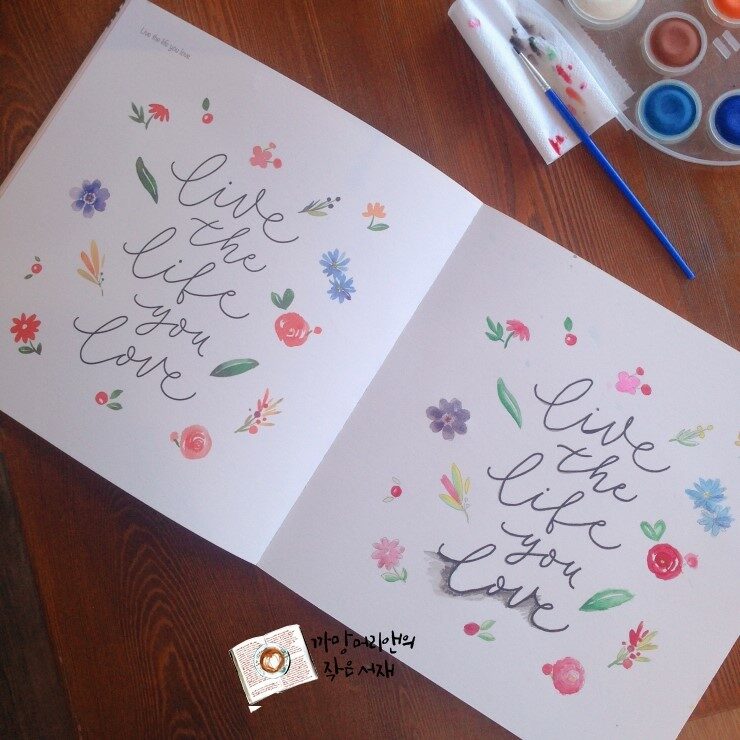 Live the life you love
live
the
life
you
love
live
the
life
you
love
까망머리앤의
작은서재